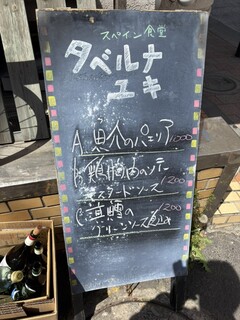 スペイン食堂
タベルナ
ユキ
A 魚介のパエリア 1000
B 鶏胸肉のソテー
マスタードソース 1200
C 真鱈の 1200
グリーンソース